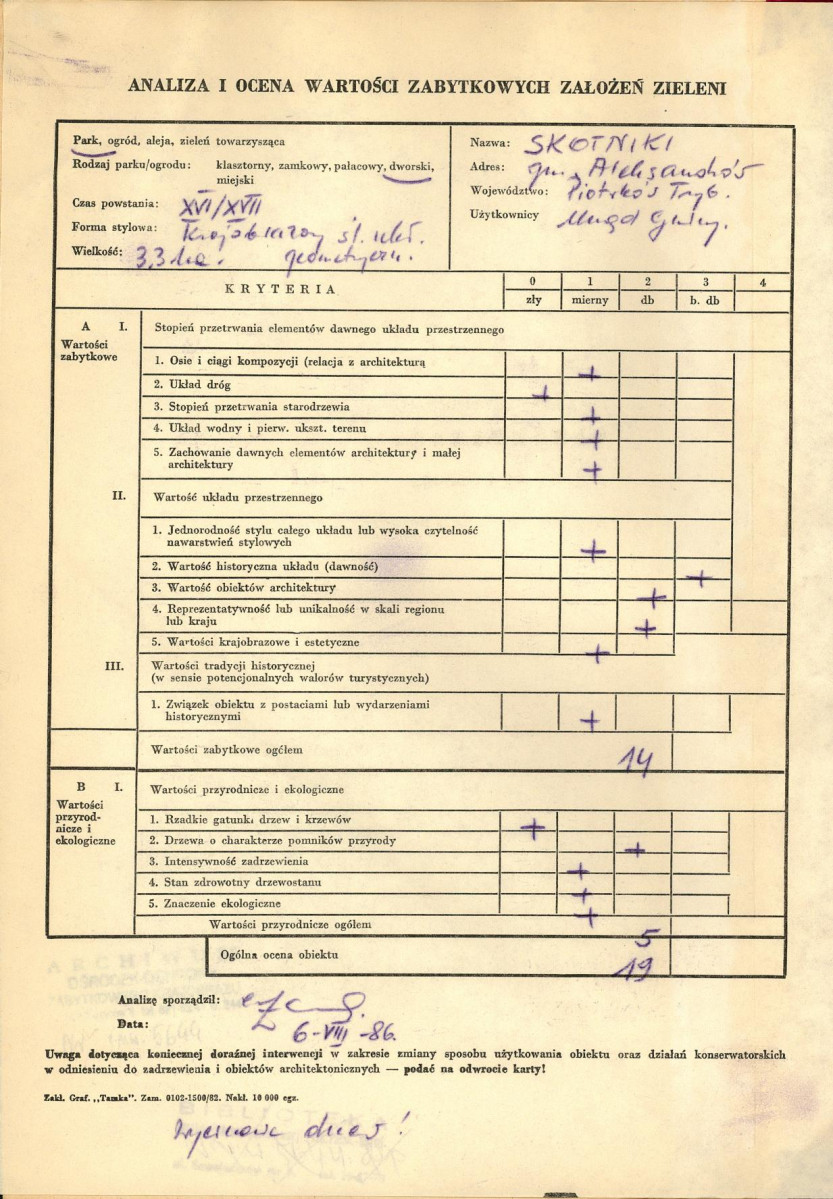 ANALIZA I OCENA WARTOŚCI ZABYTKOWYCH ZAŁOŻEŃ ZIELENI
Park, ogród, aleja, zieleń towarzysząca
Rodzaj parku/ogrodu: klasztorny, zamkowy, pałacowy, dworski,
miejski
Czas powstania: XVI/XVII
Forma stylowa: Krajobrazowy śl. ukł.
Wielkość: 3,3 ha. geometryczn.
Nazwa: SKOTNIKI
Adres: gm. Aleksandrów
Województwo: Piotrków Tryb.
Użytkownicy Urząd Gminy.
KRYTERIA 0 1 2 3 4
zły mierny db b. db
A I. Stopień przetrwania elementów dawnego układu przestrzennego
Wartości
zabytkowe
1. Osie i ciągi kompozycji (relacja z architekturą +
2. Układ dróg +
3. Stopień przetrwania starodrzewia +
4. Układ wodny i pierw. ukszt. terenu +
5. Zachowanie dawnych elementów architektury i małej
architektury +
II. Wartość układu przestrzennego
1. Jednorodność stylu całego układu lub wysoka czytelność
nawarstwień stylowych +
2. Wartość historyczna układu (dawność) +
3. Wartość obiektów architektury +
4. Reprezentatywność lub unikalność w skali regionu
lub kraju +
5. Wartości krajobrazowe i estetyczne +
III. Wartości tradycji historycznej
(w sensie potencjonalnych walorów turystycznych)
1. Związek obiektu z postaciami lub wydarzeniami
historycznymi +
Wartości zabytkowe ogółem 14
B I. Wartości przyrodnicze i ekologiczne
Wartości
przyrod-
nicze i
ekologiczne
1. Rzadkie gatunki drzew i krzewów +
2. Drzewa o charakterze pomników przyrody +
3. Intensywność zadrzewienia +
4. Stan zdrowotny drzewostanu +
5. Znaczenie ekologiczne +
Wartości przyrodnicze ogółem 5
Ogólna ocena obiektu 19
Analizę sporządził:
Data: 6-VIII-86.
Uwaga dotycząca koniecznej doraźnej interwencji w zakresie zmiany sposobu użytkowania obiektu oraz działań konserwatorskich
w odniesieniu do zadrzewienia i obiektów architektonicznych — podać na odwrocie karty!
Zakł. Graf. „Tamka". Zam. 0102-1500/82. Nakł. 10 000 egz.